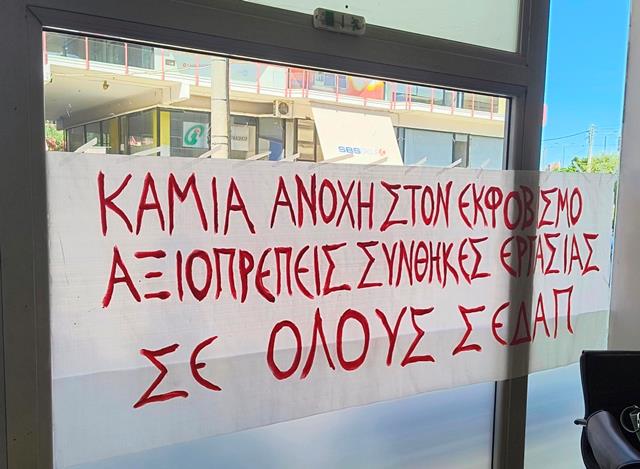 SBS
ΚΑΜΙΑ ΑΝΟΧΗ ΣΤΟΝ ΕΚΦΟΒΙΣΜΟ
ΑΞΙΟΠΡΕΠΕΙΣ ΣΥΝΘΗΚΕΣ ΕΡΓΑΣΙΑΣ
ΣΕ ΟΛΟΥΣ ΣΕΔΑΠ